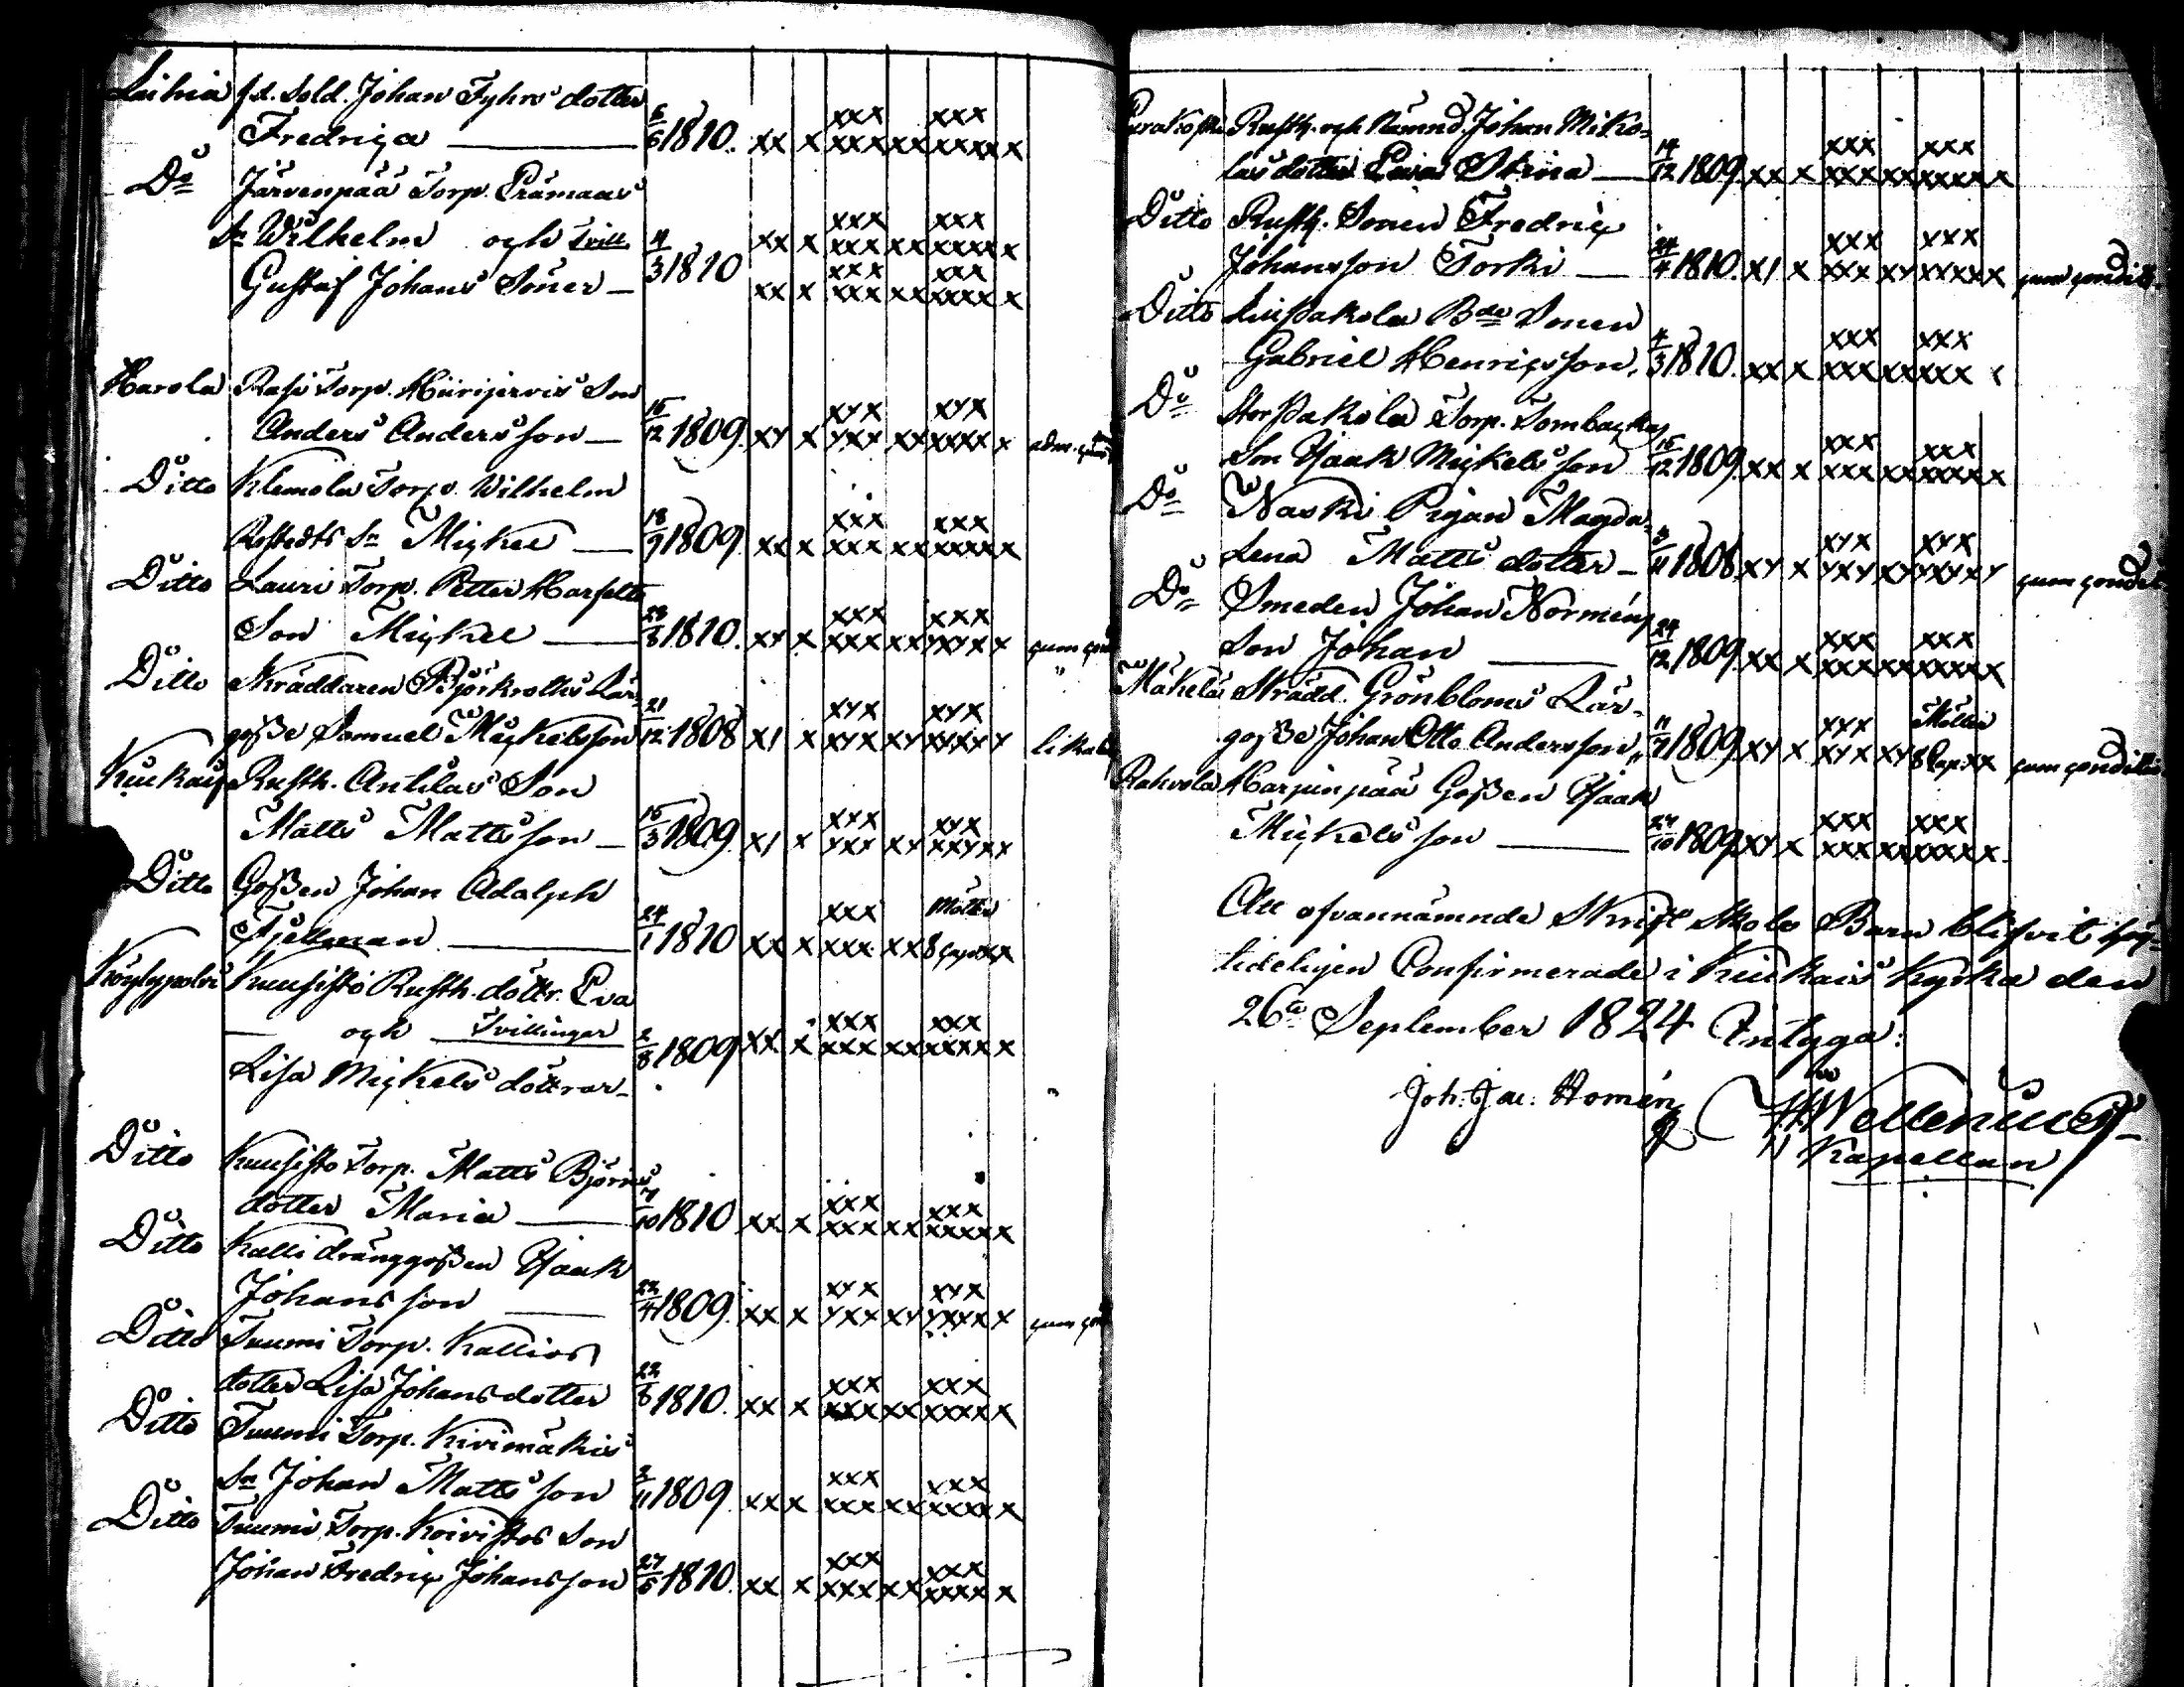 Laihia fd. Sold. Johan Fyhrs dotter
Fredrica 6/6 1810. xx x xxx xxx xxx xx xxxxx x
Do Järvenpää Torp. Prämaas
Sn Wilhelm och Tvill. xx x xxx xxx xxx xx xxxxx x
4/3 1810
Gustaf Johans Söner xx x xxx xxx xxx xx xxxxx x
Harola Rasi Torp. Hiirijervis Son
Anders Andersson 15/12 1809. xy x xyx xyx yxx xx xxxx x adm. cum
Ditto Klemola Torp. Wilhelm
Rostedts Sn Mickel 18/9 1809 xx x xxx xxx xxx xx xxxxx x
Ditto Lauri Torp. Petter Harfelts
Son Mickel 23/8 1810. xy x xxx xxx xxx xx xxyx x cum con
Ditto Skräddaren Björkroths Lär-
gosse Samuel Mickelsson 21/12 1808 x1 x xyx xyx xyx xy xyxy y lika
Kiukais Rusth. Anttilas Son
Matts Mattsson 15/3 1809 x1 x xyx xyx yxx xy xxyx x
Ditto Gossen Johan Adolph
Fjellman 24/1 1810 xx x xxx xxx xx 8 Cap. xx
Köylypolvi Kuusisto Rusth. döttr. Eva
och Tvillingar 2/8 1809 xx x xxx xxx xxx xx xxxx x
Lisa Mickels döttrar
Ditto Kuusisto Torp. Matts Björns
dotter Maria 7/10 1810 xx x xxx xxx xxx xx xxxxx x
Ditto Kalli dränggossen Isaak
Johansson 22/4 1809. xx x xyx xyx yxx xy yxyx x cum con
Ditto Tuomi Torp. Kallios
dotter Lisa Johansdotter 22/8 1810. xx x xxx xxx xxx xx xxxx x
Ditto Tuomi Torp. Kivimäkis
Sn Johan Mattsson 3/11 1809. xx x xxx xxx xxx xx xxxx x
Ditto Tuomi Torp. Koivistos Son
Johan Fredric Johansson 27/5 1810. xx x xxx xxx xxx xx xxxx x
Rusth. och Nämnd. Johan Miko-
las dotter Caisa Stina 14/12 1809. xx x xxx xxx xxx xx xxxxx x
Ditto Rusth. Sonen Fredric
Johansson Torki 24/4 1810. x1 x xxx xxx xyx xy xyxx x cum condit.
Ditto Bde Sonen
Gabriel Henricsson, 4/3 1810. xx x xxx xxx xxx xx xxx x
Do Torp. Tombackas
Son Isaak Mickelsson 15/12 1809. xx x xxx xxx xxx xx xxxx x
Do Naski Pigan Magda-
lena Matts dotter 11 1808. xy x xyx xyx yxy xy yxyx y cum condit
Do Smeden Johan Norméns
Son Johan 24/12 1809. xx x xxx xxx xxx xx xxxxx x
Mäkelä Skrädd. Grönbloms Lär-
gosse Johan Otto Andersson 11/7 1809. xy x xyx xyx xy 8 Cap. xx cum condit
Rahvola Harjunpää Gossen Isaak
Mickelsson 24/10 1809. xy x xxx xxx xxx xx xxxx x.
Att ofvannämnde Skrift Skole Barn blifvit hög-
tideligen Confirmerade i Kiukais Kyrka den
26te September 1824 Intyga:
Joh. Jac. Homén Wellenius
Kapellan